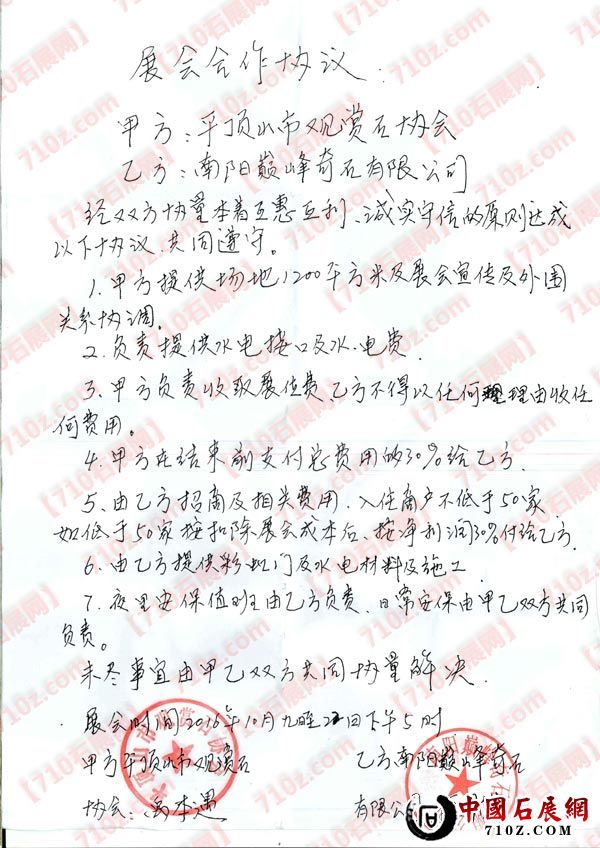 展会合作协议
甲方：平顶山市观赏石协会
乙方：南阳巅峰奇石有限公司
经双方协量本着互惠互利、诚实守信的原则达成
以下协议，共同遵守。
1.甲方提供场地1200平方米及展会宣传及外围
关系协调。
2.负责提供水电接口及水.电费.
3.甲方负责收取展位费,乙方不得以任何理由收任
何费用。
4.甲方在结束前支付总费用的30%给乙方.
5.由乙方招商及相关费用.入住商户不低于50家.
如低于50家按扣除展会成本后.按净利润30%付给乙方.
6.由乙方提供彩虹门及水电材料及施工.
7.夜里安保值班由乙方负责.日常安保由甲乙双方共同
负责。
未尽事宜由甲乙双方共同协量解决.
展会时间2016年10月 下午5时
甲方平顶山市观赏石
乙方,南阳巅峰奇石
协会:
有限公司
中國石展網
710Z.COM
【710石展网】
710z.com